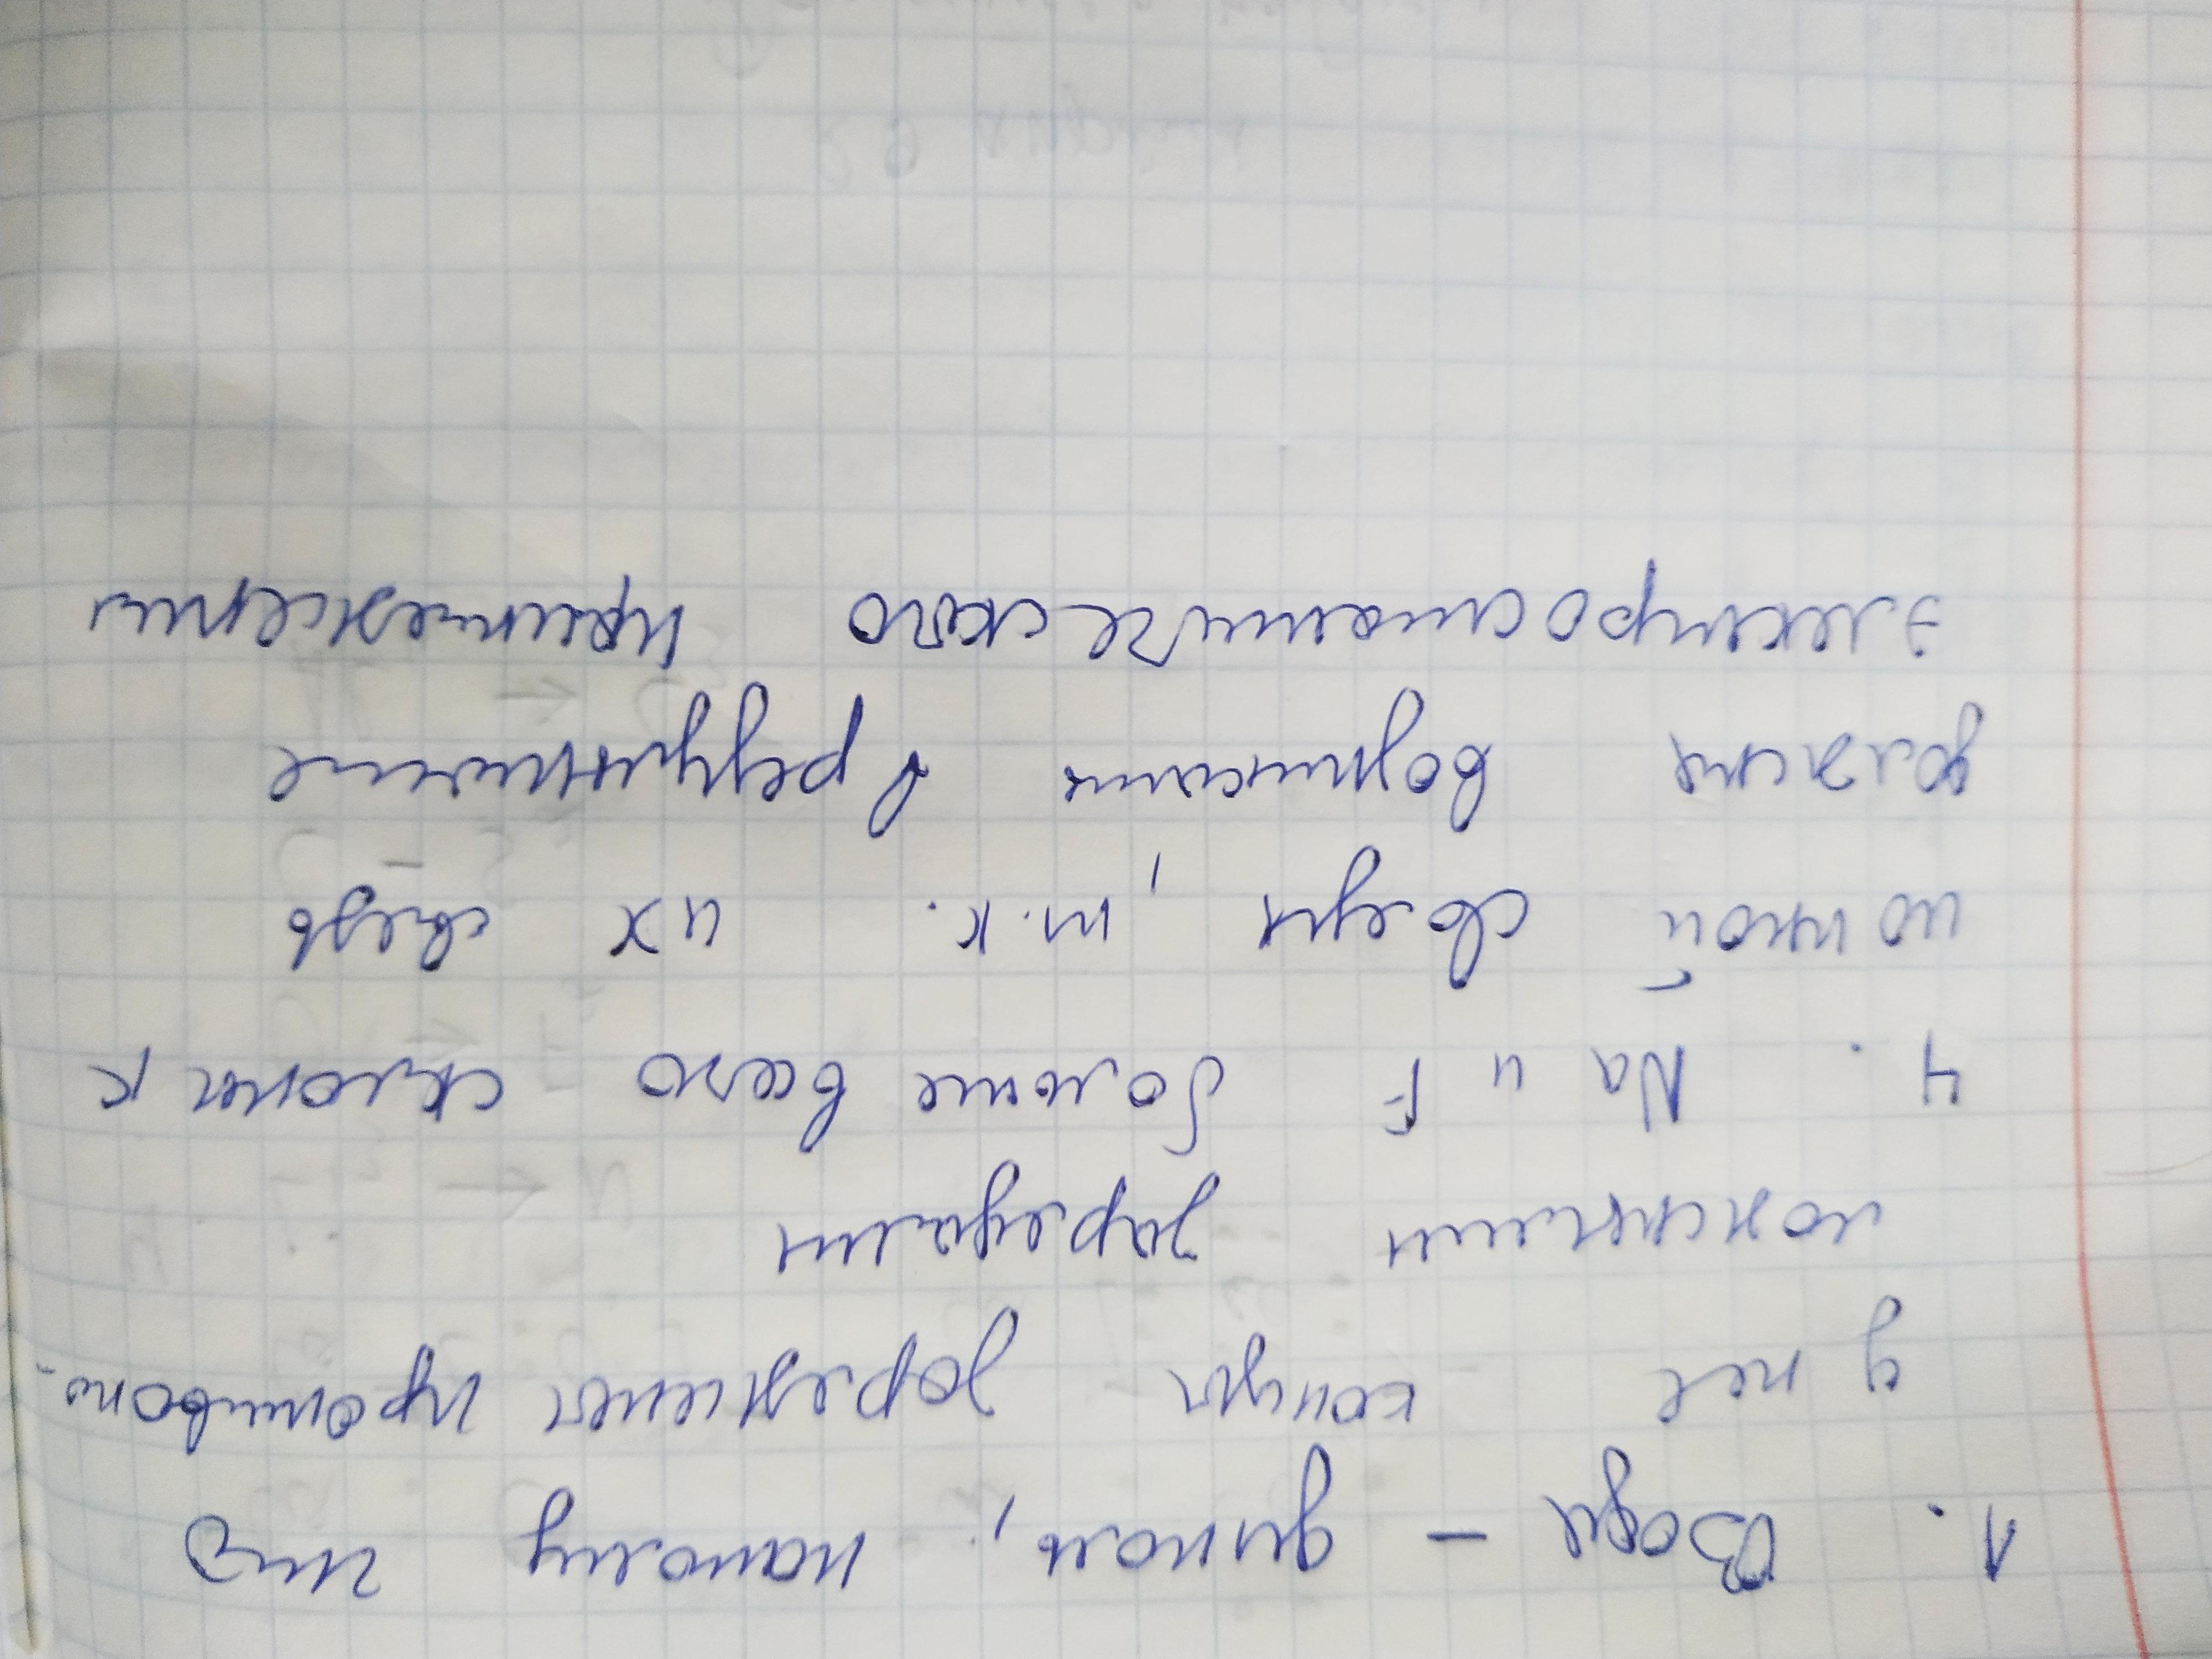 1. Вода - диполь, потому что
у нее концы заряжены противопо-
ложными зарядами
4. Na и F больше всего склонны к
ионной связи, т.к. их связь
должна возникать в результате
электростатического притяжения